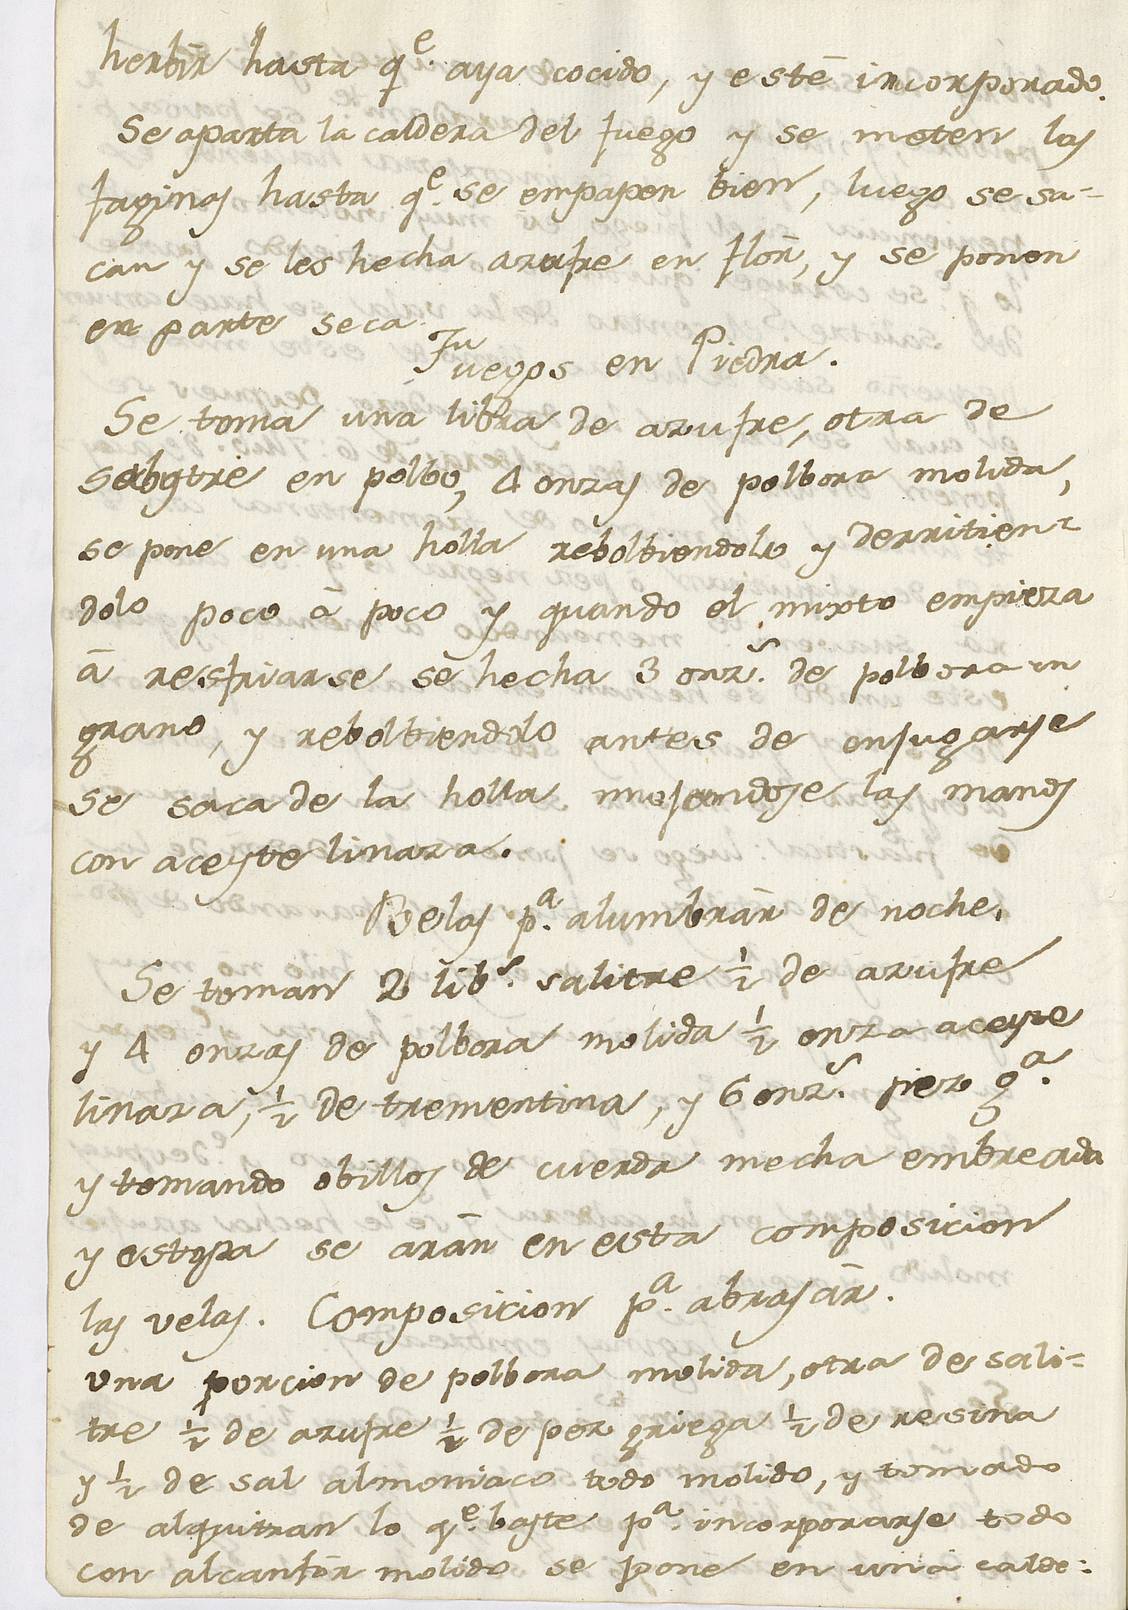 herbir hasta q.e aya cocido, y esté incorporado.
Se aparta la caldera del fuego y se meten las
faginas hasta q.e se empapen bien, luego se sa=
can y se les hecha azufre en flor, y se ponen
en parte seca.
Fuegos en Piedra.
Se toma una libra de azufre, otra de
en polbo, 4 onzas de polbora molida,
se pone en una holla reboltiendolo y derritien=
dolo poco á poco y quando el mixto empieza
á resfriarse se hecha 3 onz.s de polbora en
grano, y reboltiendolo antes de enjugarse
se saca de la holla mojandose las manos
con aceyte linaza.
Belas p.a alumbrar de noche.
Se toman 2 lib.s salitre 1/2 de azufre
y 4 onzas de polbora molida 1/2 onza aceyte
linaza, 1/2 de trementina, y 6 onz.s pez g.a
y tomando obillos de cuerda mecha embreada
y estopa se arán en esta composicion
las velas. Composicion p.a abrasár.
una porcion de polbora molida, otra de sali=
tre 1/2 de azufre 1/2 de pez griega 1/2 de resina
y 1/2 de sal almoniaco todo molido, y tomado
de alquitran lo q.e baste p.a incorporarse todo
con alcanfór molido se pone en una calde=